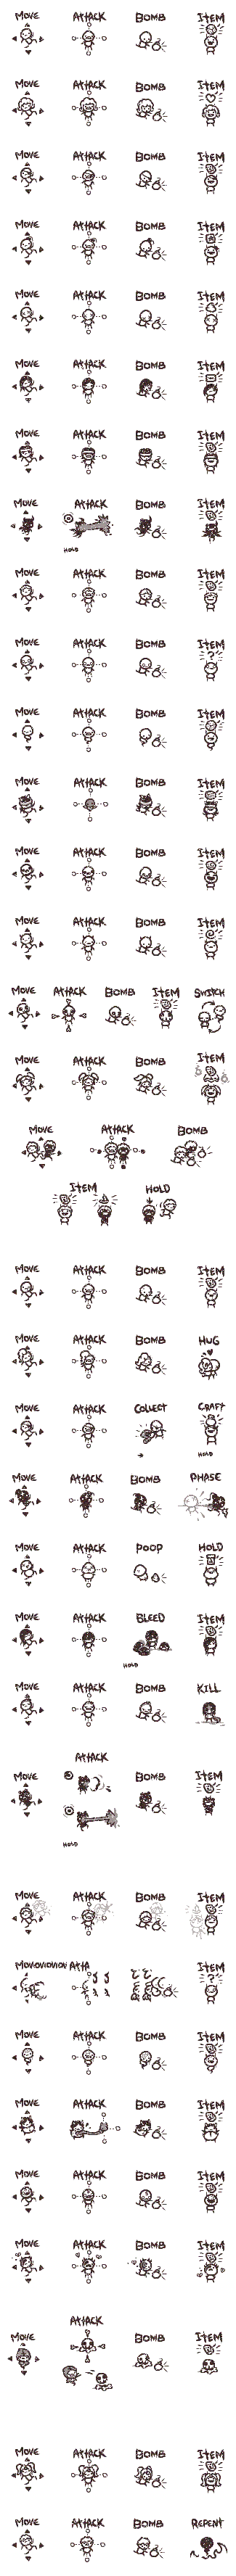 MOVE ATTACK BOMB ITEM
MOVE ATTACK BOMB ITEM
MOVE ATTACK BOMB ITEM
MOVE ATTACK BOMB ITEM
MOVE ATTACK BOMB ITEM
MOVE ATTACK BOMB ITEM
MOVE ATTACK BOMB ITEM
MOVE ATTACK BOMB ITEM
HOLD
MOVE ATTACK BOMB ITEM
MOVE ATTACK BOMB ITEM
?
MOVE ATTACK BOMB ITEM
MOVE ATTACK BOMB ITEM
MOVE ATTACK BOMB ITEM
MOVE ATTACK BOMB ITEM
MOVE ATTACK BOMB ITEM SWITCH
MOVE ATTACK BOMB ITEM
MOVE ATTACK BOMB
ITEM HOLD
MOVE ATTACK BOMB ITEM
MOVE ATTACK BOMB HUG
MOVE ATTACK COLLECT CRAFT
HOLD
MOVE ATTACK BOMB PHASE
MOVE ATTACK POOP HOLD
MOVE ATTACK BLEED ITEM
HOLD
MOVE ATTACK BOMB KILL
ATTACK
MOVE BOMB ITEM
HOLD
MOVE ATTACK BOMB ITEM
MOVOVOVOVOVI ATTA ITEM
?
MOVE ATTACK BOMB ITEM
MOVE ATTACK BOMB ITEM
MOVE ATTACK BOMB ITEM
MOVE ATTACK BOMB ITEM
ATTACK
MOVE BOMB ITEM
MOVE ATTACK BOMB ITEM
MOVE ATTACK BOMB REPENT